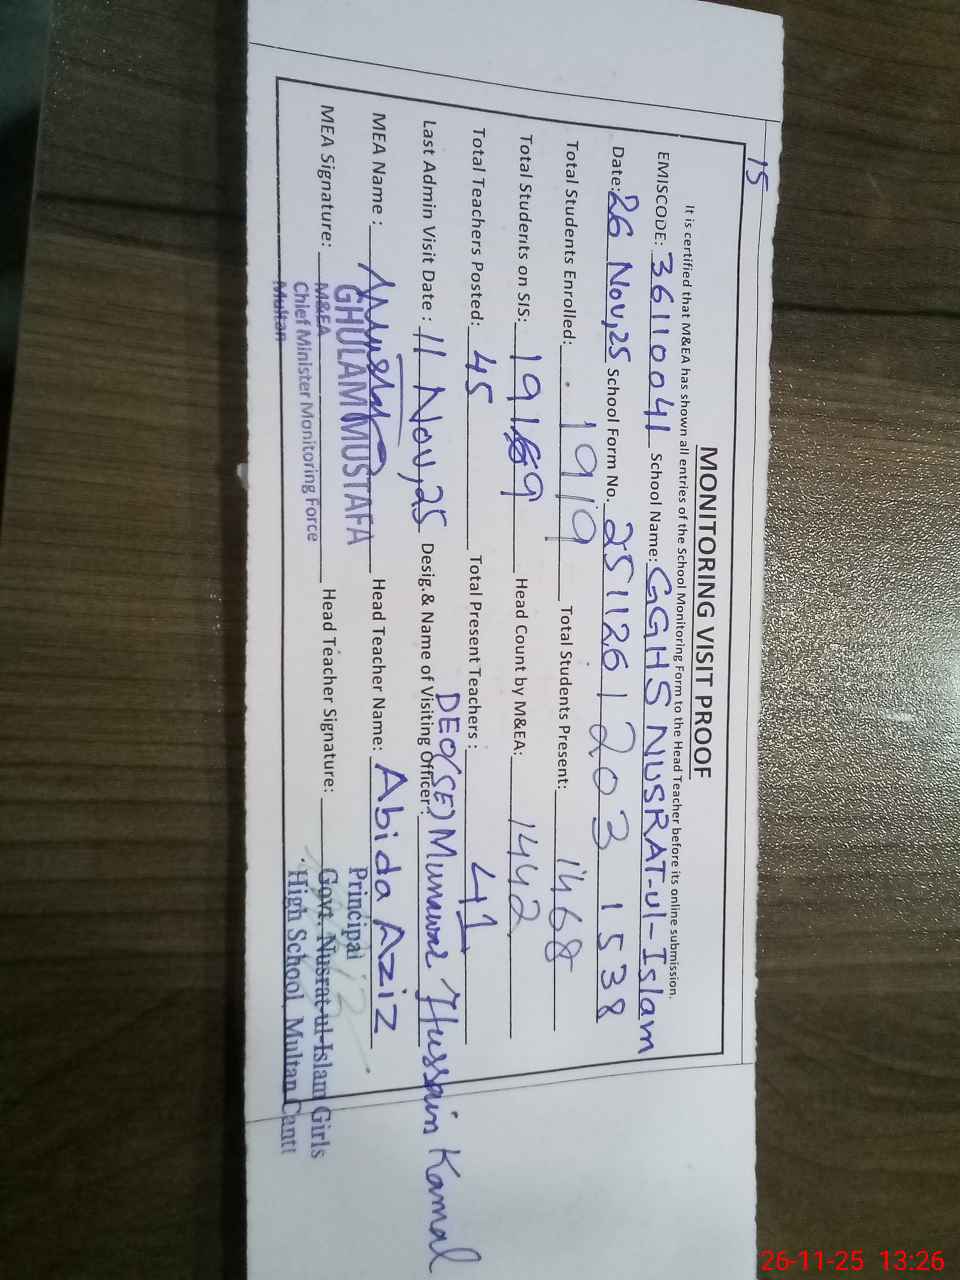 15
MONITORING VISIT PROOF
It is certified that M&EA has shown all entries of the School Monitoring Form to the Head Teacher before its online submission.
EMISCODE: 36110041 School Name: GGHS NUSRAT-ul-Islam
Date: 26 Nov,25 School Form No. 251126 1203 1538
Total Students Enrolled: 1919 Total Students Present: 1468
Total Students on SIS: 19169 Head Count by M&EA: 1442
Total Teachers Posted: 45 Total Present Teachers : 41
Last Admin Visit Date : 11 Nov,25 Desig.& Name of Visiting Officer: DEO(SE) Munawar Hussain Kamal
MEA Name : GHULAM MUSTAFA Head Teacher Name: Abida Aziz
MEA Signature: Head Teacher Signature:
M&EA
Chief Minister Monitoring Force
Multan
Principal
Govt. Nusrat-ul-Islam Girls
High School, Multan Cantt
26-11-25 13:26